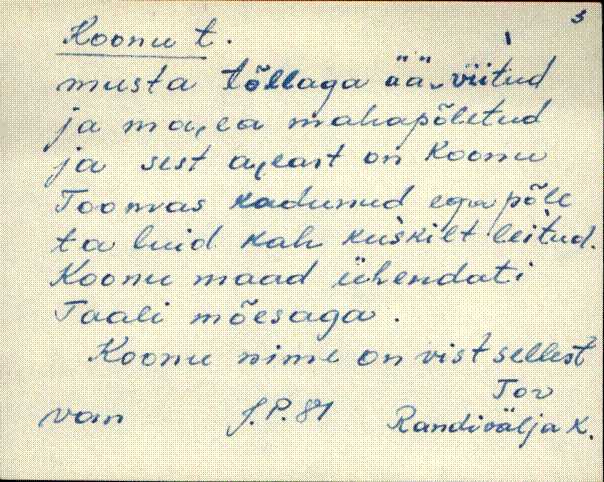 3
Koonu t.
musta tõllaga ää viitud
ja ma,ea mahapõletud
ja sest a,east on Koonu
Toomas kadunud ega põle
ta luid kah kuskilt leitud.
Koonu maad ühendati
Taali mõesaga.
Koonu nime on vist sellest
Tor
vam J.P. 81 Randivälja K.